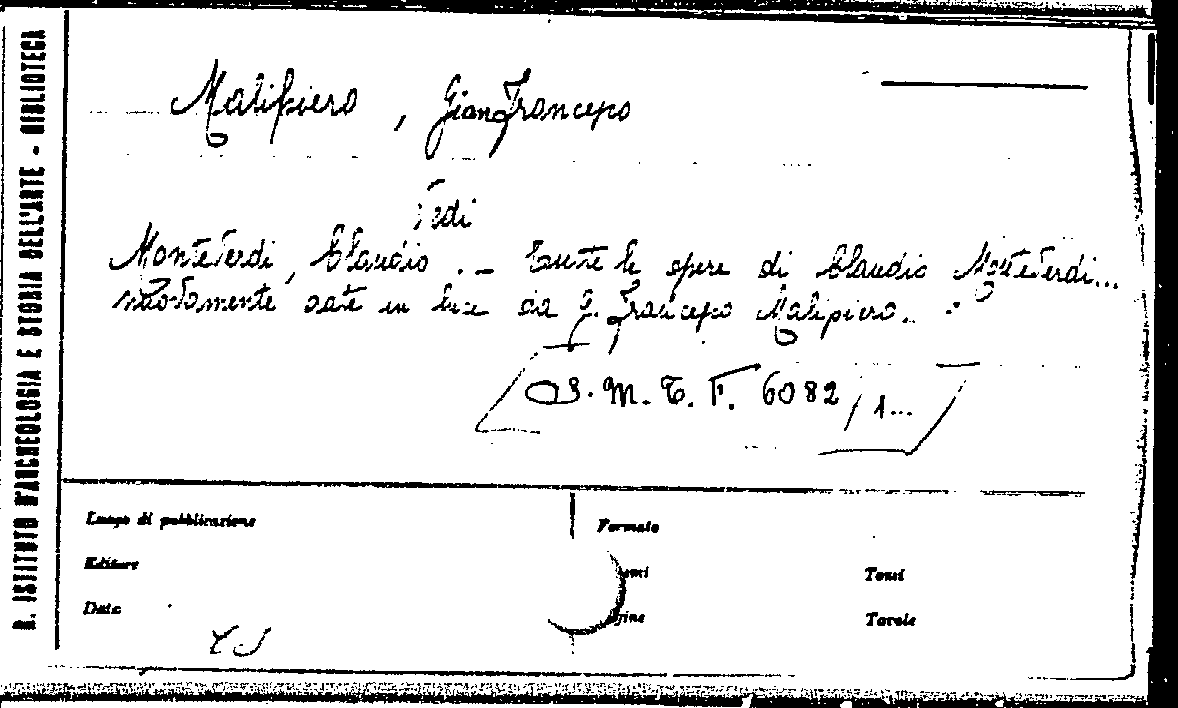 R. ISTITUTO D'ARCHEOLOGIA E STORIA DELL'ARTE - BIBLIOTECA
Malipiero, Gianfrancesco
Vedi
Monteverdi, Claudio .- Tutte le opere di Claudio Monteverdi...
nuovamente date in luce da G. Francesco Malipiero.
M. T. F. 6082/1...
Luogo di pubblicazione
Formato
Editore
Tomi
Data
Tavole